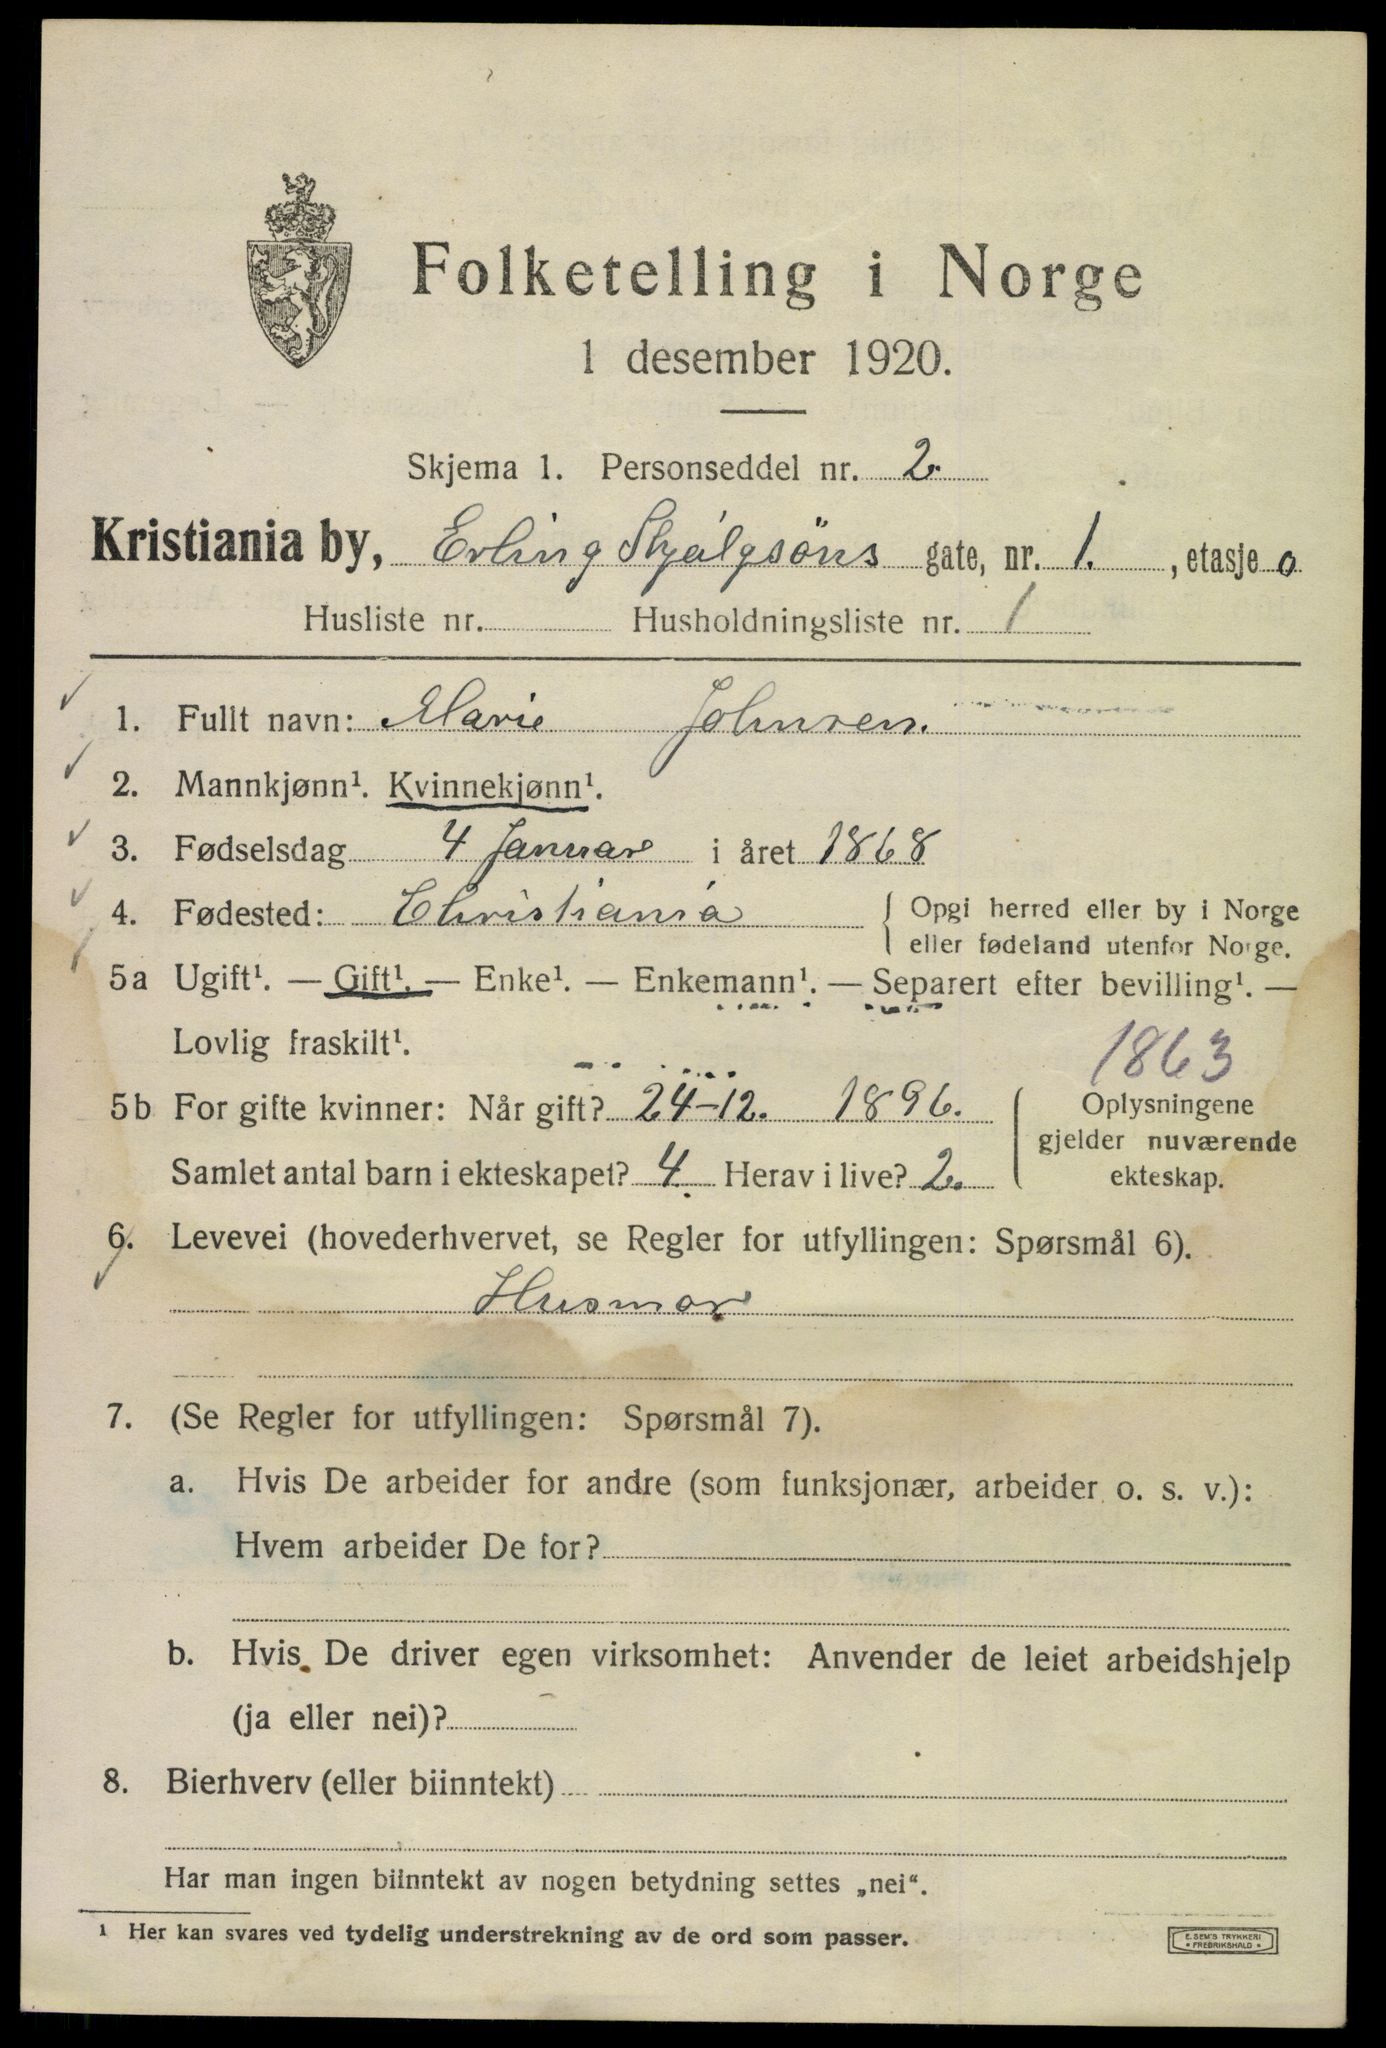 Folketelling i Norge
1 desember 1920.
Skjema 1. Personseddel nr. 2.
Kristiania by, Erling Skjalgsöns gate, nr. 1., etasje 0
Husliste nr. Husholdningsliste nr. 1
1. Fullt navn: Marie Johnsen.
2. Mannkjønn¹. Kvinnekjønn¹.
3. Fødselsdag 4 Januar i året 1868
4. Fødested: Christiania { Opgi herred eller by i Norge
eller fødeland utenfor Norge.
5a Ugift¹. — Gift¹. — Enke¹. — Enkemann¹. — Separert efter bevilling¹. —
Lovlig fraskilt¹.
1863
5b For gifte kvinner: Når gift? 24-12. 1896.
Samlet antal barn i ekteskapet? 4. Herav i live? 2.
Oplysningene
gjelder nuværende
ekteskap.
6. Levevei (hovederhvervet, se Regler for utfyllingen: Spørsmål 6).
Husmor
7. (Se Regler for utfyllingen: Spørsmål 7).
a. Hvis De arbeider for andre (som funksjonær, arbeider o. s. v.):
Hvem arbeider De for?
b. Hvis De driver egen virksomhet: Anvender de leiet arbeidshjelp
(ja eller nei)?
8. Bierhverv (eller biinntekt)
Har man ingen biinntekt av nogen betydning settes „nei“.
¹ Her kan svares ved tydelig understrekning av de ord som passer.
E. SEM'S TRYKKERI
• FREDRIKSHALD •